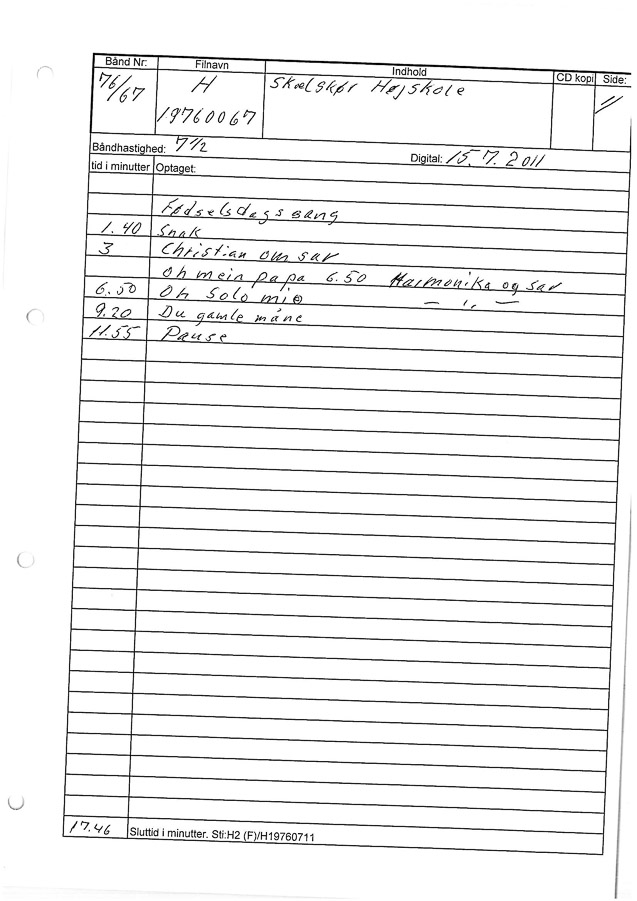 Bånd Nr: Filnavn Indhold CD kopi Side:
76/67 H Skælskør Højskole 11
19760067
Båndhastighed: 7 1/2 Digital: 15.7.2011
tid i minutter Optaget:
Fødselsdagssang
1.40 Snak
3 Christian om sav
Oh mein papa 6.50 Harmonika og sav
6.50 Oh Solo mio — " —
9.20 Du gamle måne
11.55 Pause
17.46 Sluttid i minutter. Sti:H2 (F)/H19760711